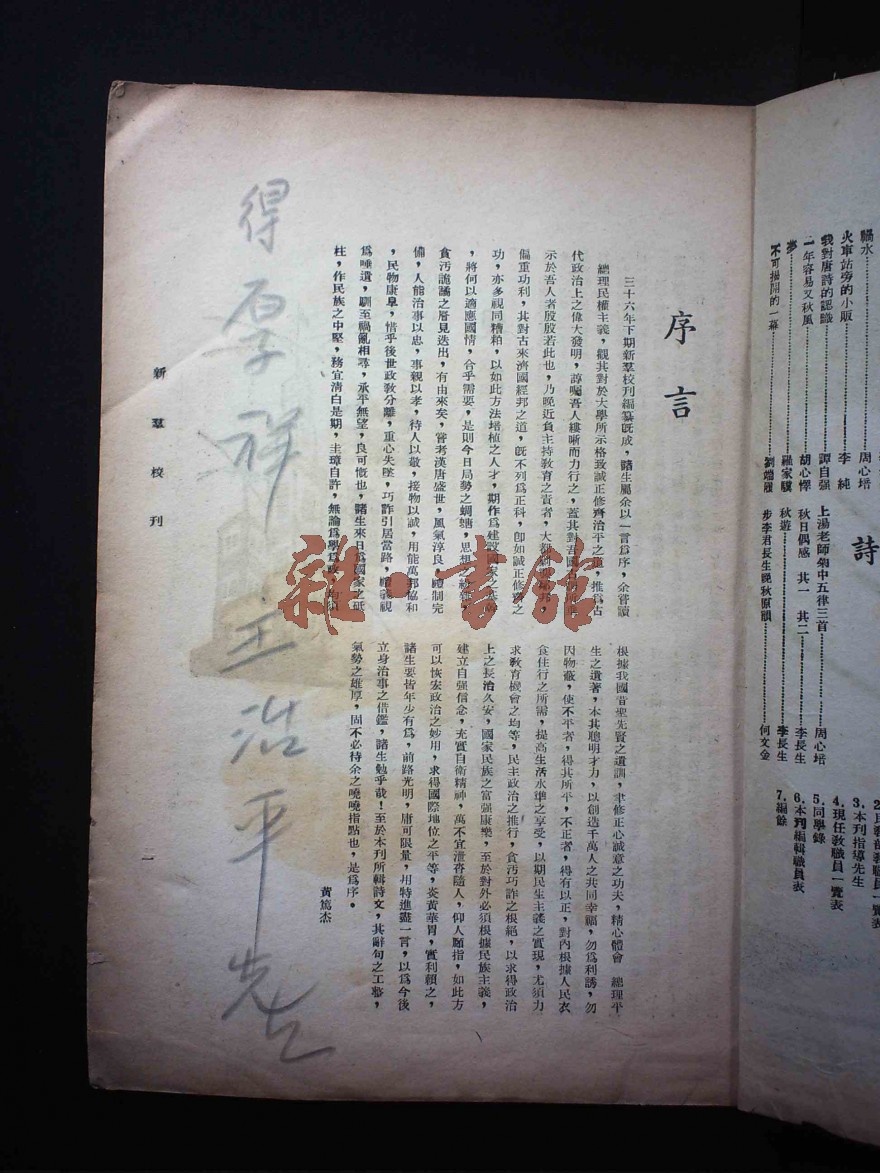 禍水……………周心培
火車站旁的小販……………李　純
我對唐詩的認識……………譚自强
一年容易又秋風……………胡心懌
夢……………羅家驥
不可描閙的一幕……………劉端履
詩
上湯老師菊中五律三首……………周心培
秋日偶感　其一　其二……………李長生
秋遊……………李長生
步李君長生晚秋原韻……………何文金
3.本刊指導先生
4.現任教職員一覽表
5.同學錄
6.本刊編輯職員表
7.編餘
序言
三十六年下期新羣校刊編纂既成，諸生屬余以一言爲序，余嘗讀
總理民權主義，觀其對於大學所示格致誠正修齊治平之道，推爲古
代政治上之偉大發明，諄囑吾人縷晰而力行之，蓋其對吾國
示於吾人者殷殷若此也，乃晚近負主持敎育之責者，大都
偏重功利，其對古來濟國經邦之道，旣不列爲正科，卽如誠正修齊之
功，亦多視同糟粕，以如此方法培植之人才，期作爲建設國家之
，將何以適應國情，合乎需要，是則今日局勢之蜩螗，思想之
貪汚詭譎之層見迭出，有由來矣，嘗考漢唐盛世，風氣淳良，禮制完
備，人能治事以忠，事親以孝，待人以敬，接物以誠，用能萬邦協和
，民物康阜，惜乎後世政敎分離，重心失墜，巧詐引居當路，禮義視
爲唾遺，馴至禍亂相尋，承平無望，良可慨也，諸生來日爲國家之砥
柱，作民族之中堅，務宜淸白是期，圭璋自許，無論爲學
根據我國昔聖先賢之遺訓，聿修正心誠意之功夫，精心體會　總理平
生之遺著，本其聰明才力，以創造千萬人之共同幸福，勿爲利誘，勿
因物蔽，使不平者，得其所平，不正者，得有以正，對內根據人民衣
食住行之所需，提高生活水準之享受，以期民生主義之實現，尤須力
求敎育機會之均等，民主政治之推行，貪汚巧詐之根絕，以求得政治
上之長治久安，國家民族之富强康樂，至於對外必須根據民族主義，
建立自强信念，充實自衛精神，萬不宜泄沓隨人，仰人頤指，如此方
可以恢宏政治之妙用，求得國際地位之平等，炎黃華胄，實利賴之，
諸生要皆年少有爲，前路光明，庸可限量，用特進盡一言，以爲今後
立身治事之借鑑，諸生勉乎哉！至於本刊所輯詩文，其辭句之工整，
氣勢之雄厚，固不必待余之嘵嘵指點也，是爲序。
黃篤杰
雜·書館
得厚祥主浩平先
新羣校刊
一